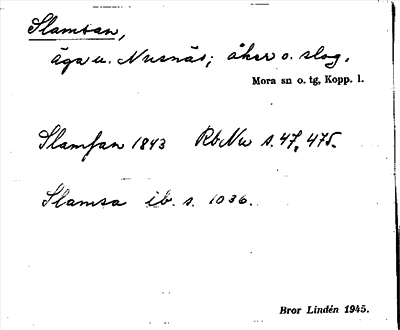 Slamsan,
äga u. Nusnäs; åker o. slog.
Mora sn o. tg, Kopp. l.
Slamsan 1843 RbNu s. 47, 475.
Slamsa ib. s. 1036.
Bror Lindén 1945.